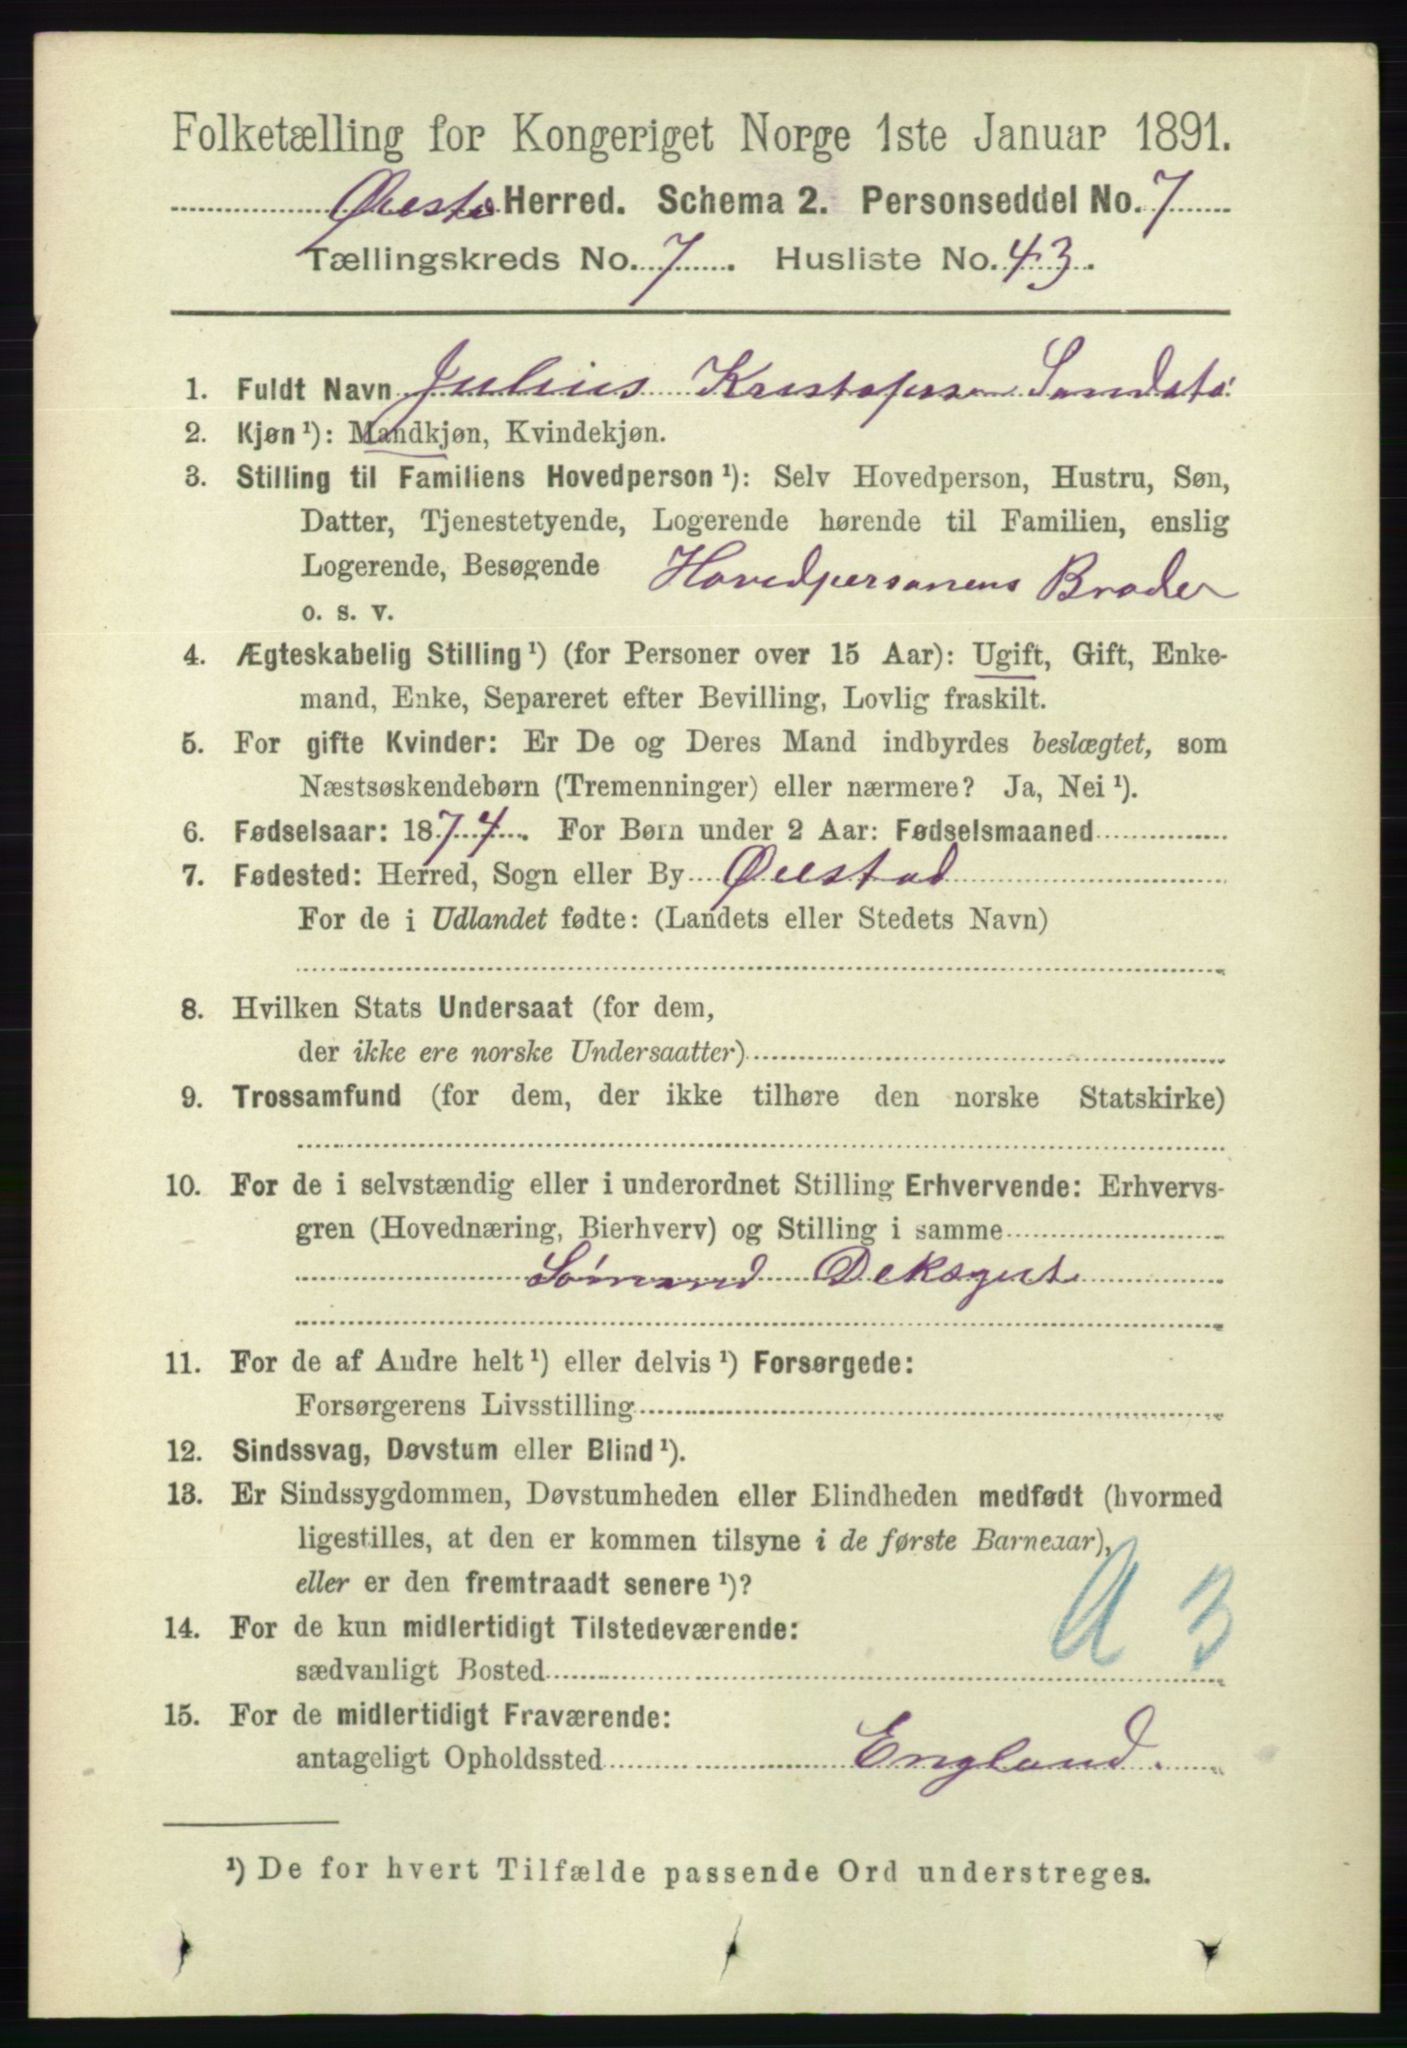 Folketælling for Kongeriget Norge 1ste Januar 1891.
Øiestad Herred. Schema 2. Personseddel No. 7
Tællingskreds No. 7. Husliste No. 43.
1. Fuldt Navn Julius Kristofersen Sandstø
2. Kjøn ¹): Mandkjøn, Kvindekjøn.
3. Stilling til Familiens Hovedperson ¹): Selv Hovedperson, Hustru, Søn,
Datter, Tjenestetyende, Logerende hørende til Familien, enslig
Logerende, Besøgende Hovedpersonens Broder
o. s. v.
4. Ægteskabelig Stilling ¹) (for Personer over 15 Aar): Ugift, Gift, Enke-
mand, Enke, Separeret efter Bevilling, Lovlig fraskilt.
5. For gifte Kvinder: Er De og Deres Mand indbyrdes beslægtet, som
Næstsøskendebørn (Tremenninger) eller nærmere? Ja, Nei ¹).
6. Fødselsaar: 1874. For Børn under 2 Aar: Fødselsmaaned
7. Fødested: Herred, Sogn eller By Øiestad
For de i Udlandet fødte: (Landets eller Stedets Navn)
8. Hvilken Stats Undersaat (for dem,
der ikke ere norske Undersaatter)
9. Trossamfund (for dem, der ikke tilhøre den norske Statskirke)
10. For de i selvstændig eller i underordnet Stilling Erhvervende: Erhvervs-
gren (Hovednæring, Bierhverv) og Stilling i samme
Sømand Deksgut
11. For de af Andre helt ¹) eller delvis ¹) Forsørgede:
Forsørgerens Livsstilling
12. Sindssvag, Døvstum eller Blind ¹).
13. Er Sindssygdommen, Døvstumheden eller Blindheden medfødt (hvormed
ligestilles, at den er kommen tilsyne i de første Barneaar),
eller er den fremtraadt senere ¹)?
14. For de kun midlertidigt Tilstedeværende:
sædvanligt Bosted
15. For de midlertidigt Fraværende:
antageligt Opholdssted England.
¹) De for hvert Tilfælde passende Ord understreges.